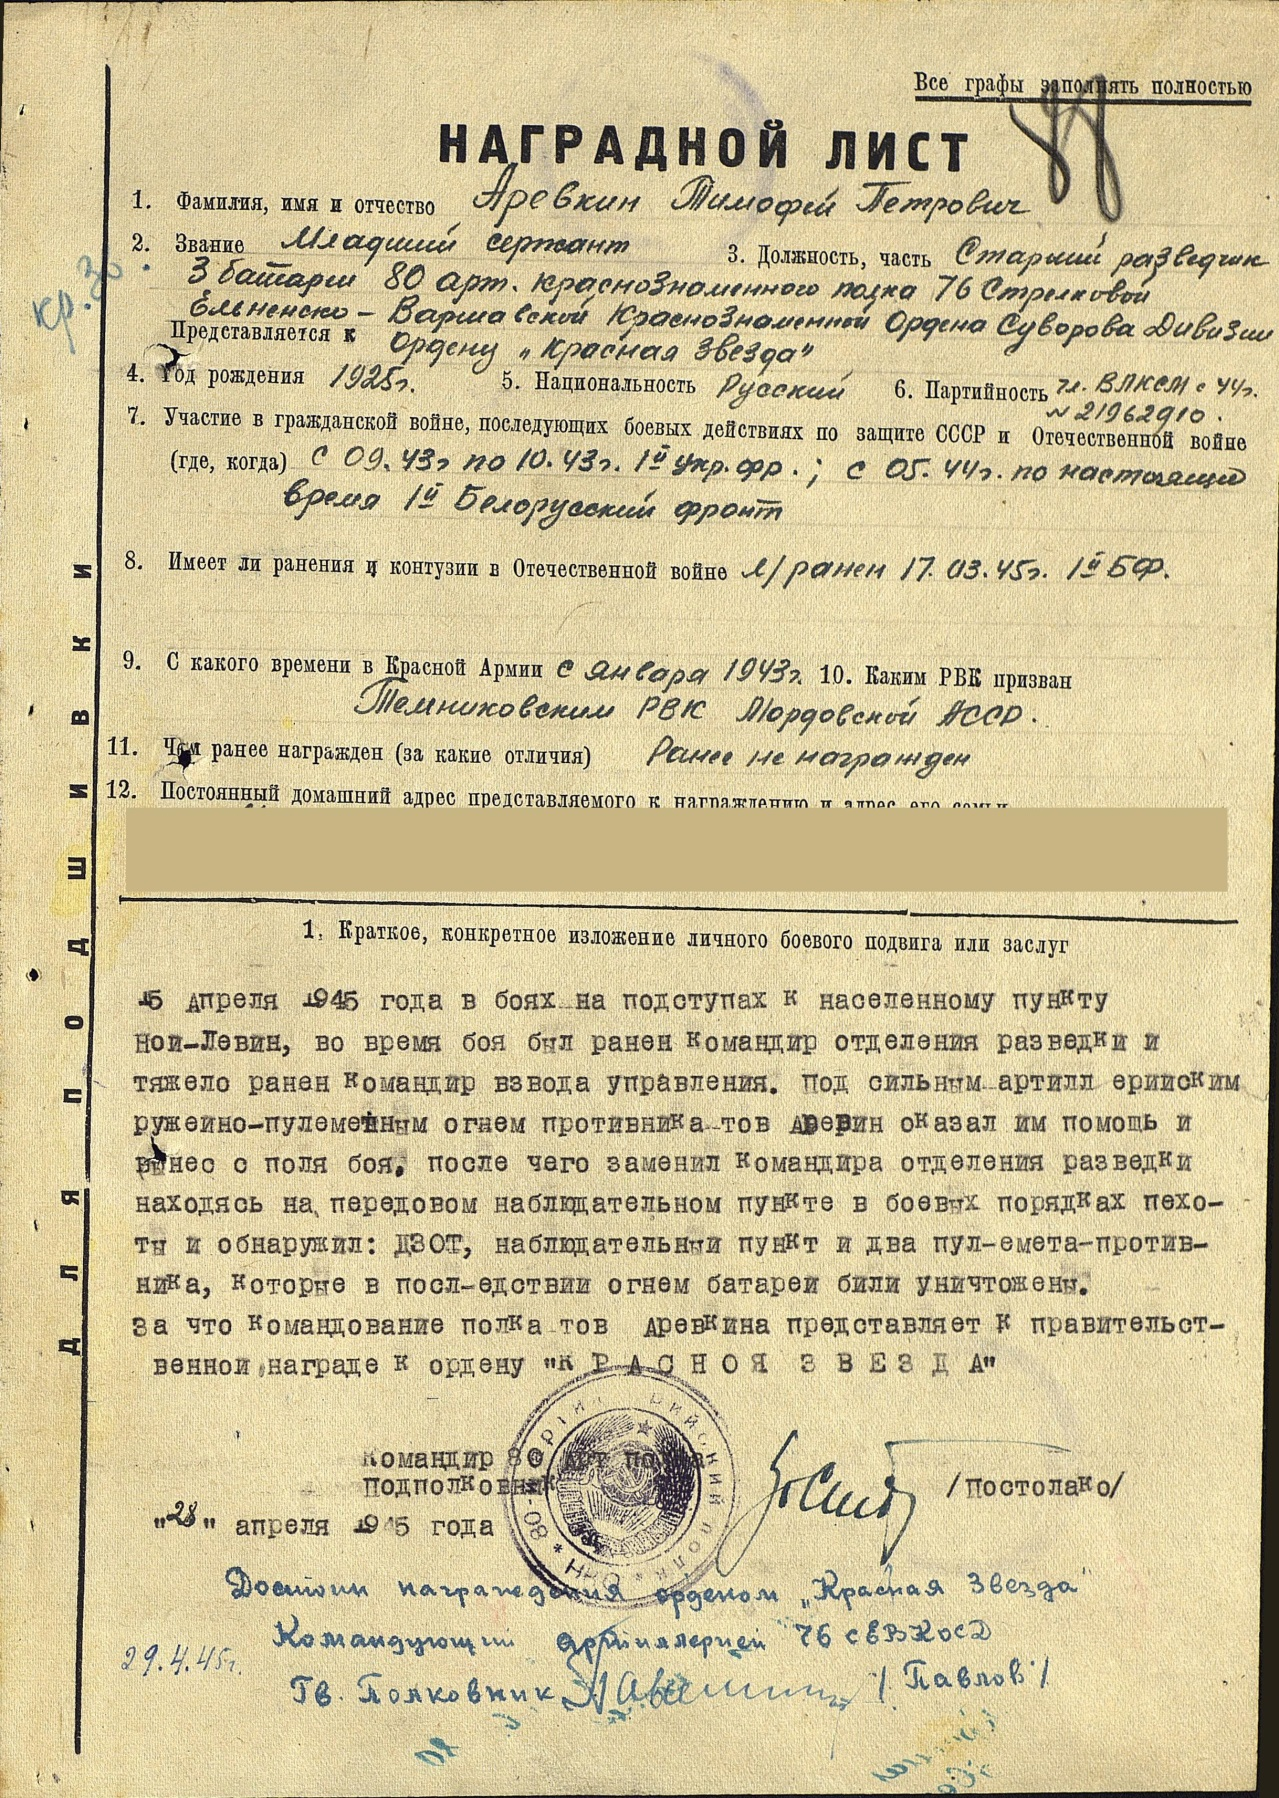 Все графы заполнять полностью
НАГРАДНОЙ ЛИСТ
1. Фамилия, имя и отчество Аревкин Тимофей Петрович
2. Звание Младший сержант 3. Должность, часть Старший разведчик
3 батареи 80 арт. краснознаменного полка 76 Стрелковой
Ельненско - Варшавской Краснознаменной Ордена Суворова Дивизии
Представляется к Ордену „Красная Звезда"
кр. Зв.
4. Год рождения 1925г. 5. Национальность Русский 6. Партийность чл. ВЛКСМ с 44г.
№ 21962910.
7. Участие в гражданской войне, последующих боевых действиях по защите СССР и Отечественной войне
(где, когда) С 09.43г по 10.43г. 1й Укр. фр.; с 05.44г. по настоящее
время 1й Белорусский фронт
8. Имеет ли ранения и контузии в Отечественной войне л/ранен 17.03.45г. 1й БФ.
9. С какого времени в Красной Армии с января 1943г. 10. Каким РВК призван
Темниковским РВК Мордовской АССР.
11. Чем ранее награжден (за какие отличия) Ранее не награжден
12. Постоянный домашний адрес представляемого к награждению и адрес его семьи
ДЛЯ ПОДШИВКИ
1. Краткое, конкретное изложение личного боевого подвига или заслуг
15 Апреля 1945 года в боях на подступах к населенному пункту
Ной-Левин, во время боя был ранен командир отделения разведки и
тяжело ранен командир взвода управления. Под сильным артилл ерииским
ружейно-пулеметным огнем противника тов Аревин оказал им помощь и
вынес с поля боя, после чего заменил командира отделения разведки
находясь на передовом наблюдательном пункте в боевых порядках пехо-
ты и обнаружил: ДЗОТ, наблюдательный пункт и два пул-емета-против-
ника, которые в посл-едствии огнем батареи били уничтожены.
За что командование полка тов Аревкина представляет к правительст-
венной награде к ордену "КРАСНОЯ ЗВЕЗДА"
Командир 80 арт полка
Подполковник /Постолако/
"28" апреля 1945 года
80-й Артиллерийский полк * НКО *
Достоин награждения орденом „Красная Звезда"
Командующий артиллерией 76 сЕВКОсД
29.4.45г.
Гв. Полковник /Павлов/